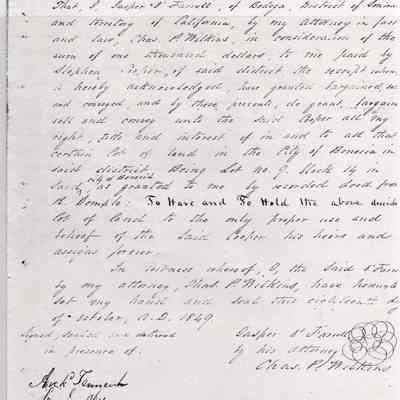 That, I, Jasper O'Farrell, of Bodega, District of Sonoma
and territory of California, by my attorney in fact
and law, Chas. P. Wilkins, in consideration of the
sum of one thousand dollars, to me paid by
Stephen Cooper, of said district the receipt where
is hereby acknowledged, have granted bargained, so
and conveyed, and by these presents, do grant, bargain
sell and convey unto the said Cooper all my
right, title and interest of in and to all that
certain lot of land in the City of Benicia in
said district Being Lot No. 9. Block 14 in
said city of Benicia, as granted to me by recorded deed from
R. Semple: To Have and To Hold the above describ
lot of land to the only proper use and
behoof of the said Cooper his heirs and
assigns forever.
In witness whereof, I, the said O'Farre
by my attorney, Chas. P. Wilkins, have hereunto
set my hand and seal this eighteenth d
of October, A.D. 1849.
Signed sealed and delivered
in presence of.
Jasper O'Farrell
by his attorney
Chas. P. Wilkins